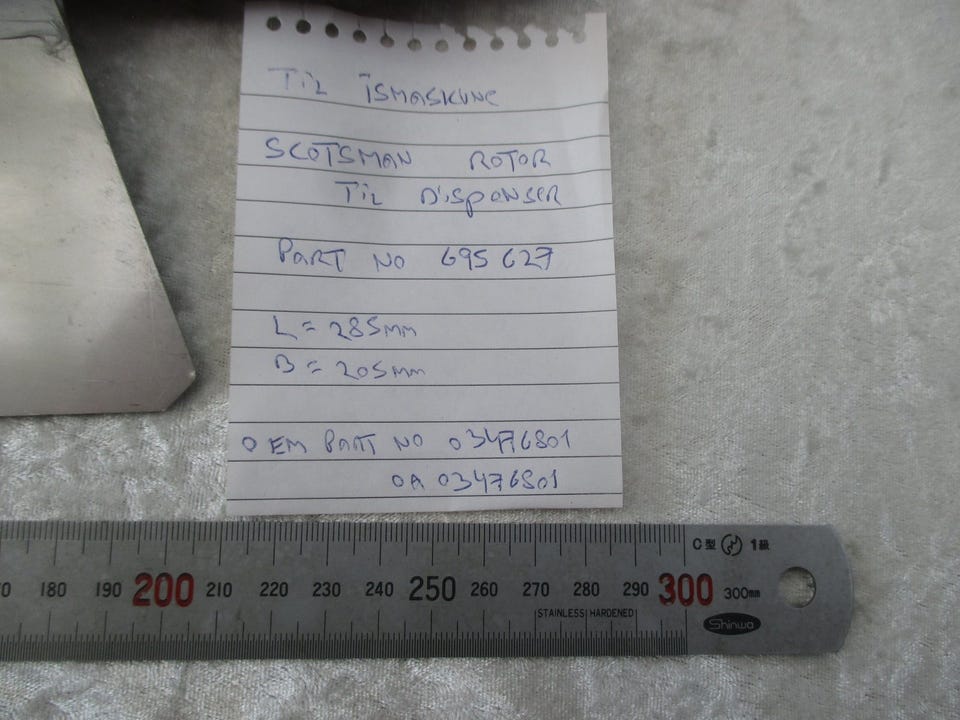 TIL ISMASKINE
SCOTSMAN ROTOR
TIL DISPENSER
PART NO 695 627
L = 285mm
B = 205mm
OEM PART NO 03476801
OA 03476801
180 190 200 210 220 230 240 250 260 270 280 290 300 300mm
C型 1級
STAINLESS HARDENED
Shinwa